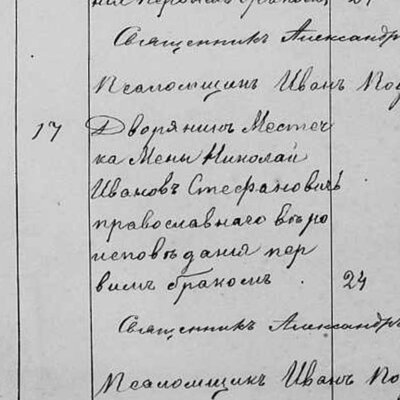 первымъ бракомъ 21
Священникъ Александр
Псаломщикъ Иванъ По
17 Дворянинъ Местеч
ка Мены Николай
Ивановъ Стефановичъ
православнаго вѣро
исповѣданія пер
вымъ бракомъ . 24
Священникъ Александръ
Псаломщикъ Иванъ По